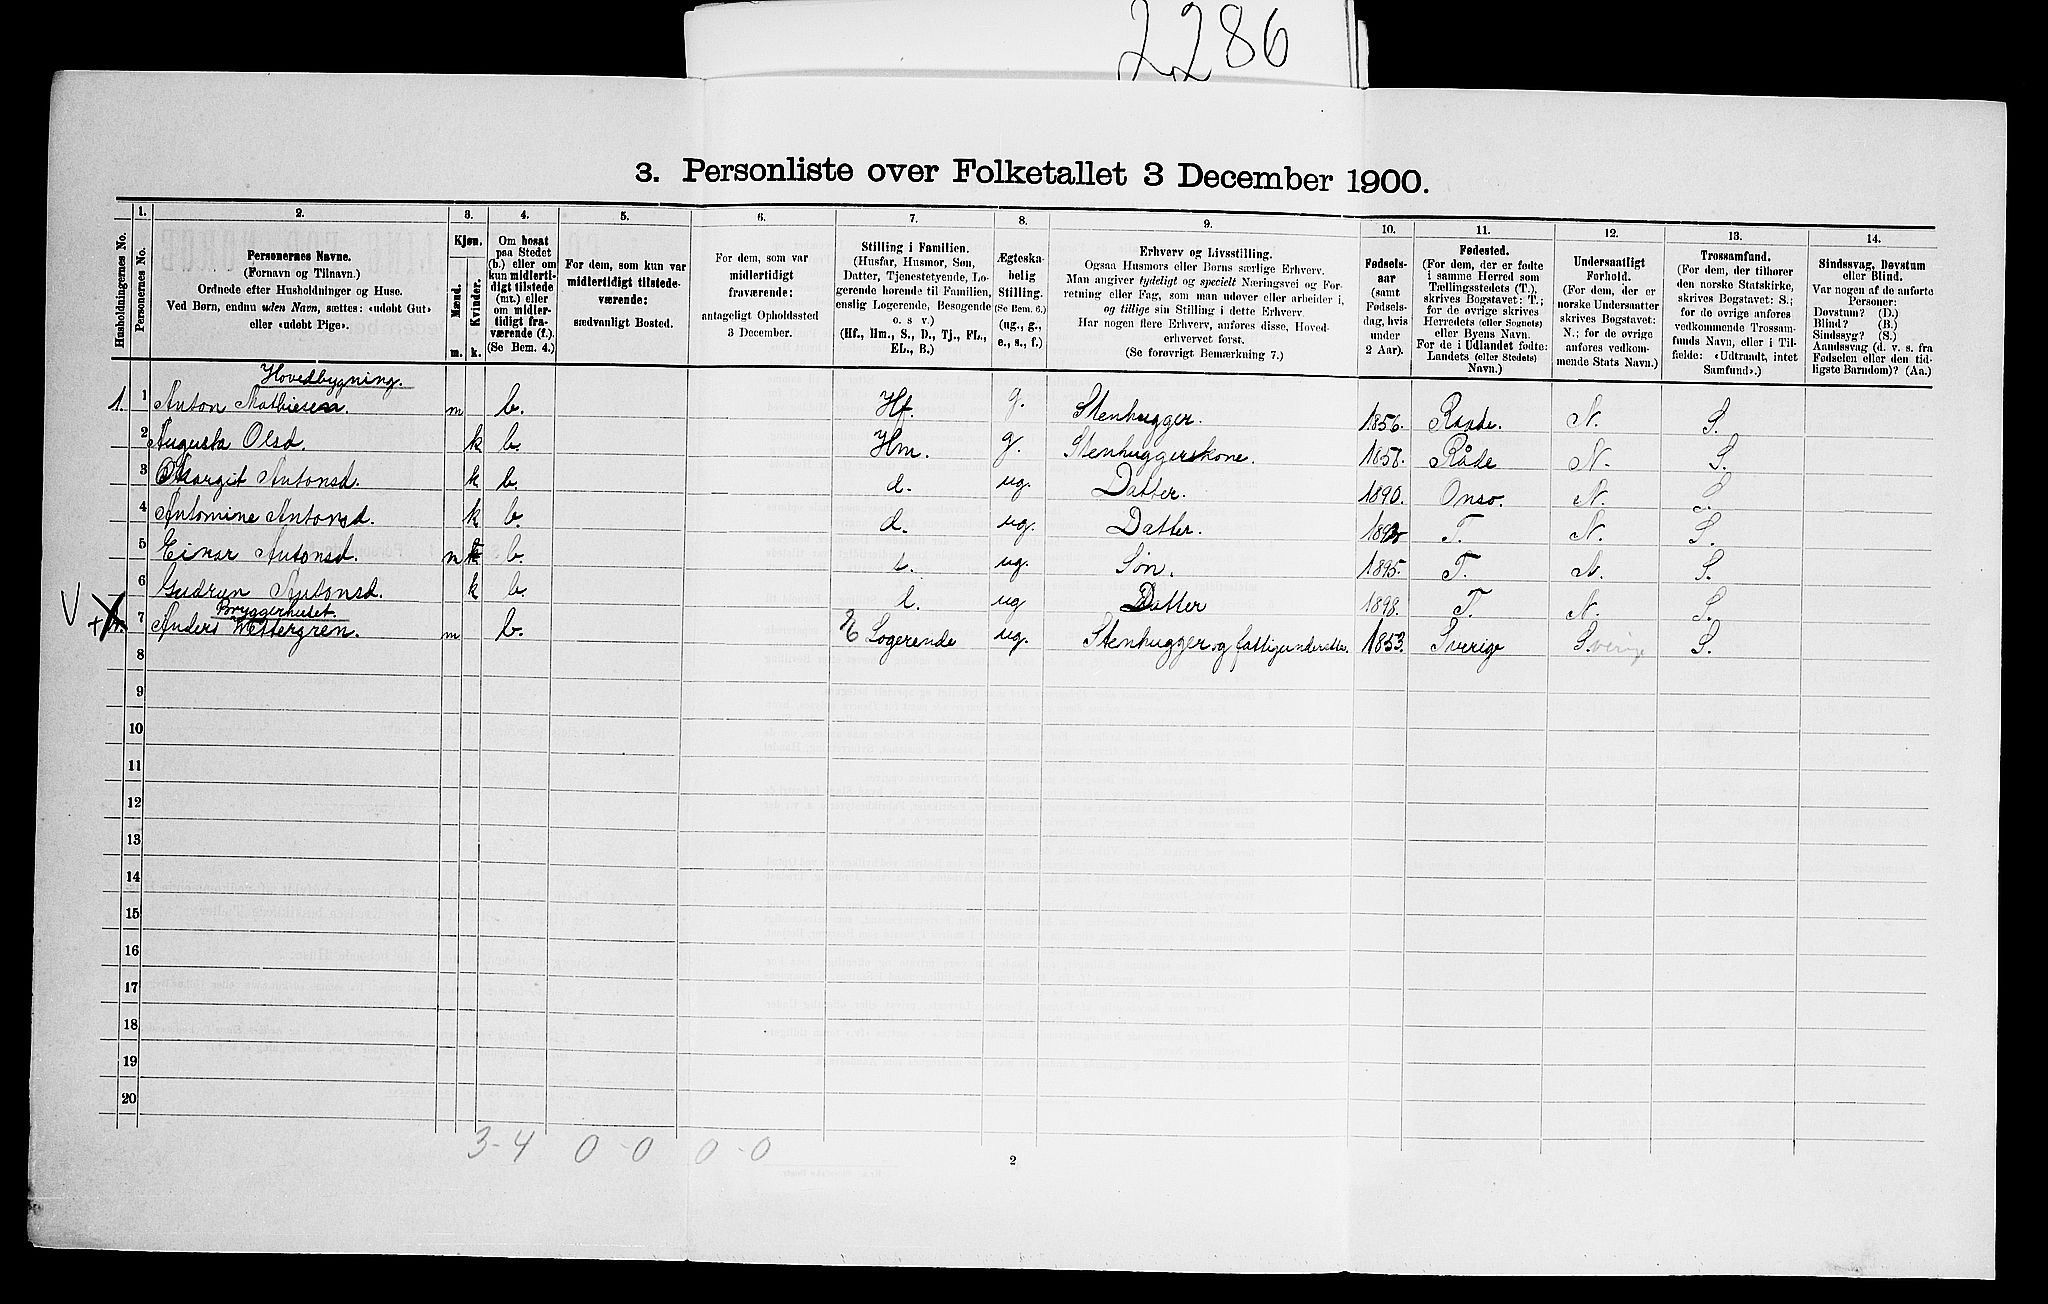 2286
3. Personliste over Folketallet 3 December 1900.
1. 2. 3. 4. 5. 6. 7. 8. 9. 10. 11. 12. 13. 14.
Husholdningernes No.
Personernes No.
Personernes Navne.
(Fornavn og Tilnavn.)
Ordnede efter Husholdninger og Huse.
Ved Børn, endnu uden Navn, sættes: «udøbt Gut»
eller «udøbt Pige».
Kjøn.
Mænd.
Kvinder.
m. k.
Om bosat
paa Stedet
(b.) eller om
kun midlerti-
digt tilstede
(mt.) eller
om midler-
tidigt fra-
værende (f.).
(Se Bem. 4.)
For dem, som kun var
midlertidigt tilstede-
værende:
sædvanligt Bosted.
For dem, som var
midlertidigt
fraværende:
antageligt Opholdssted
3 December.
Stilling i Familien.
(Husfar, Husmor, Søn,
Datter, Tjenestetyende, Lo-
gerende hørende til Familien,
enslig Logerende, Besøgende
o. s v.)
(Hf., Hm., S., D., Tj., FL.,
EL., B.)
Ægteska-
belig
Stilling.
(Se Bem. 6.)
(ug., g.,
e., s., f.)
Erhverv og Livsstilling.
Ogsaa Husmors eller Børns særlige Erhverv.
Man angiver tydeligt og specielt Næringsvei og For-
retning eller Fag, som man udøver eller arbeider i,
og tillige sin Stilling i dette Erhverv.
Har nogen flere Erhverv, anføres disse, Hoved-
erhvervet først.
(Se forøvrigt Bemærkning 7.)
Fødsels-
aar
(samt
Fødsels-
dag, hvis
under
2 Aar).
Fødested.
(For dem, der er fødte
i samme Herred som
Tællingsstedets (T.),
skrives Bogstavet: T.;
for de øvrige skrives
Herredets (eller Sognets)
eller Byens Navn.
For de i Udlandet fødte:
Landets (eller Stedets)
Navn.)
Undersaatligt
Forhold.
(For dem, der er
norske Undersaatter
skrives Bogstavet:
N.; for de øvrige
anføres vedkom-
mende Stats Navn.)
Trossamfund.
(For dem, der tilhører
den norske Statskirke,
skrives Bogstavet: S.;
for de øvrige anføres
vedkommende Trossam-
funds Navn, eller i Til-
fælde: «Udtraadt, intet
Samfund».)
Sindssvag, Døvstum
eller Blind.
Var nogen af de anførte
Personer:
Døvstum? (D.)
Blind? (B.)
Sindssyg? (S.)
Aandssvag (d. v. s. fra
Fødselen eller den tid-
ligste Barndom)? (Aa.)
Hovedbygning.
1. 1 Anton Mathiesen. m b. Hf. g. Stenhugger. 1856. Raade. N. S.
2 Augusta Olsd. k b. Hm. g. Stenhuggerskone. Råde N. S.
3 Margit Antonsd. k b. d. ug. Datter. 1890. Onsø. N. S.
4 Antonine Antonsd. k b. d. ug. Datter. T. N. S.
5 Einar Antonsd. m b. ug. Søn. 1895. T. N. S.
6 Gudrun Antonsd. k b. ug Datter 1898. T. N. S.
Bryggerhuset
V + 7 Anders Wettergren. m b. E Logerende ug. Stenhugger og fattigunderstø. 1853. Sverige Sverige S.
8
9
10
11
12
13
14
15
16
17
18
19
20
3-4 0-0 0-0
2